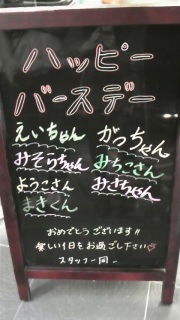 ハッピー
バースデー
えいちゃん がっちゃん
みそらちゃん みちこさん
ようこさん みきちゃん
まきくん
おめでとうございます!!
楽しい1日をお過ごし下さい♡
スタッフ一同ー